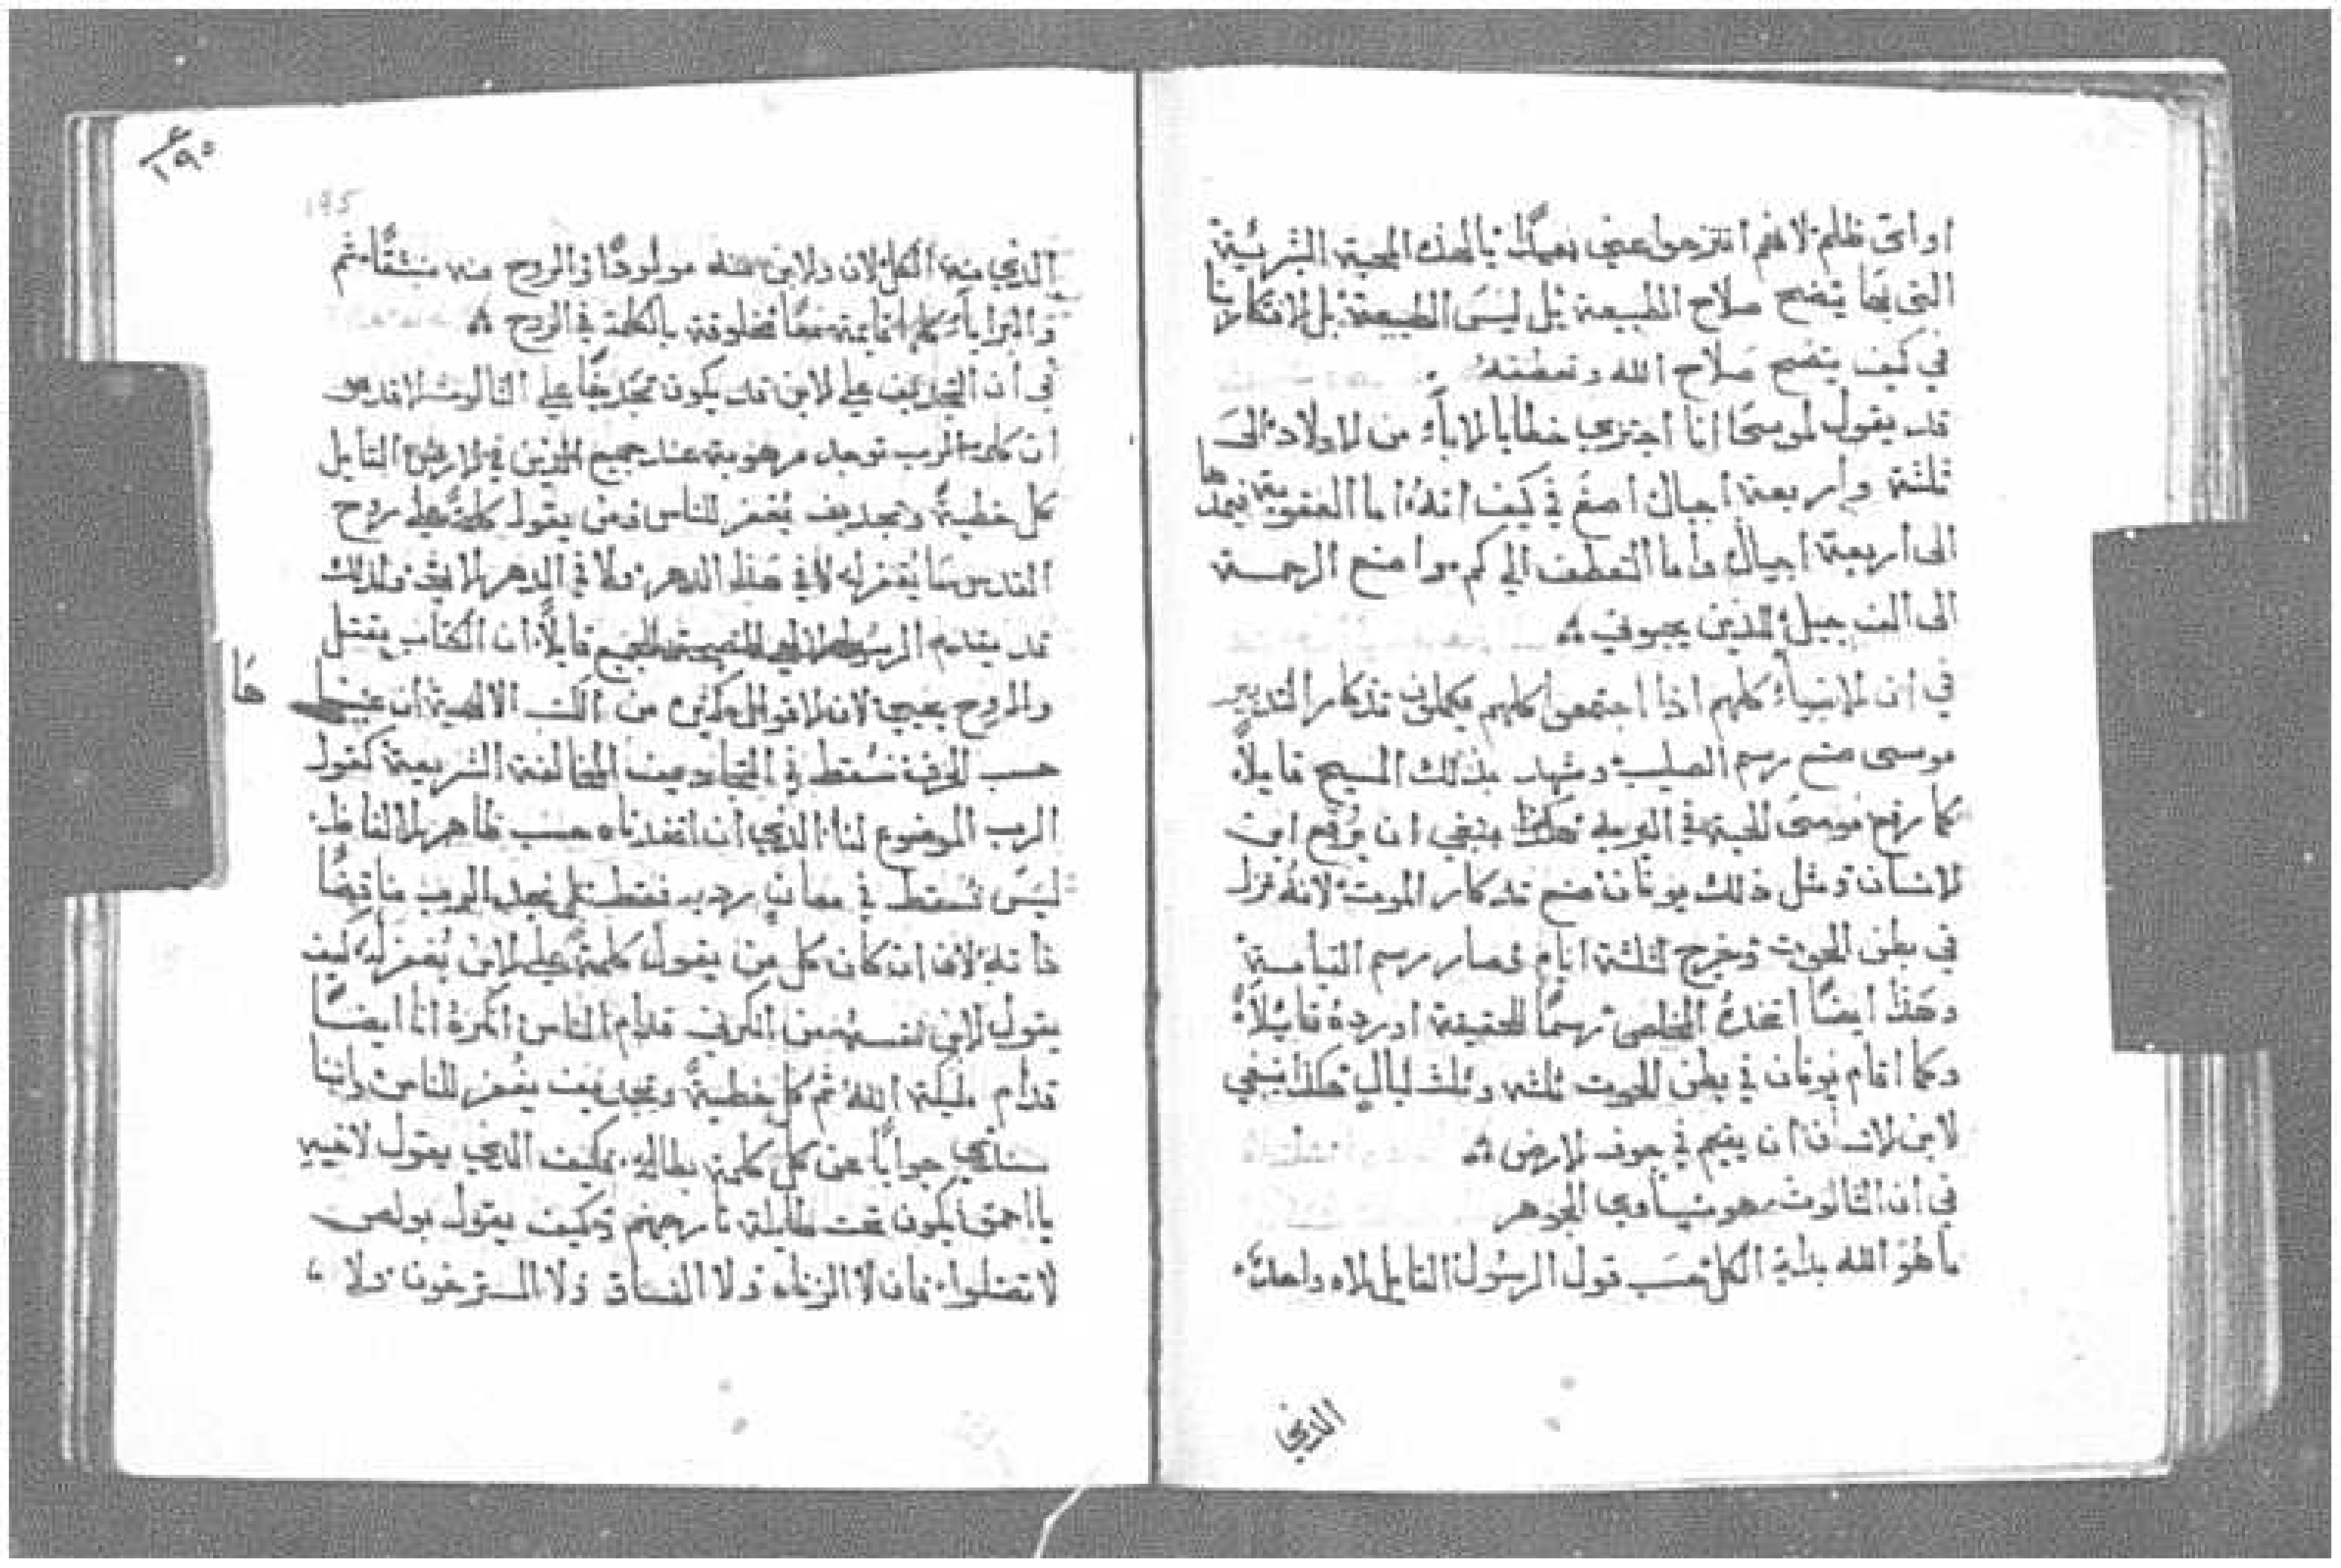 او اي ظلم لانهم انتزحوا عني بعيدًا يا لهذه المحبة البشرية
التي بها يتضح صلاح الطبيعة بل ليس الطبيعة بل لافتكارنا
في كيف يتضح صلاح الله وتعطفه
قد يقول لموسى انا اجتزي خطايا الاباء من الاولاد الى
ثلثة واربعة اجيال اصغ في كيف انه اما العقوبة فيمدها
الى اربعة اجيال واما التعطف الي كم مواضع الرحمة
الى الف جيل للذين يحبوني
في ان الانبياء كلهم اذا اجتمعوا كلهم يكملون تذكار التدبير
موسى صنع رسم الصليب وشهد بذلك المسيح قايلاً
كما رفع موسى الحية في البريه هكذا ينبغي ان يرفع ابن
الانسان ومثل ذلك يونان صنع تذكار الموت لانه نزل
في بطن الحوت وخرج لثلثة ايام وصار رسم القيامة
وهذا ايضًا اتخذه المخلص رسمًا للحقيقة اورده قائلاً
وكما اقام يونان في بطن الحوت ثلثه وثلث ليالٍ هكذا ينبغي
لابن الانسان ان يقيم في جوف الارض
في ان الثالوث هو متساوي الجوهر
ما هو الله بداية الكل حسب قول الرسول القايل الاه واحد
الذي
١٩٥
195
الذي منه الكل لان والابن منه مولودًا والروح منه منبثقًا ثم
والبرايا كلها معًا مخلوقة بالكلمة في الروح
في ان التجديف علي الابن قد يكون تجديفًا علي الثالوث الاقدس
ان كلمة الرب توجد مرهوبة عند جميع في الارض القايل
كل خطية وتجديف يغفر للناس ومن يقول كلمة على روح
القدس ما يغفر له لا في هذا الدهر ولا في الدهر الاتي ولذلك
قد يتقدم الرسول قايلاً ان الكتاب يقتل
والروح يحيي لان الاقوال من تلك الالهية ان
ها
حسب الحرف نسقط في المخالفة الشريعة كقول
الرب الموضوع لنا الذي ان اتخذناه حسب ظاهر الالفاظ
ليس نسقط في معانٍ رديه فقط بل نجد الرب مناقضًا
ذاته لانه ان كان كل من يقول كلمة على الابن يغفر له كيف
يقول الابن نفسه من انكرني قدام الناس انكره انا ايضًا
قدام مليكة الله ثم كل خطية وتجديف يغفر للناس واننا
سناتي جوابًا عن كل كلمة بطاله فكيف الذي يقول لاخيه
يا احمق يكون تحت طايلة نار جهنم وكيف يقول بولص
لا تضلوا فان لا الزناه ولا الفساق ولا المسترخون ولا